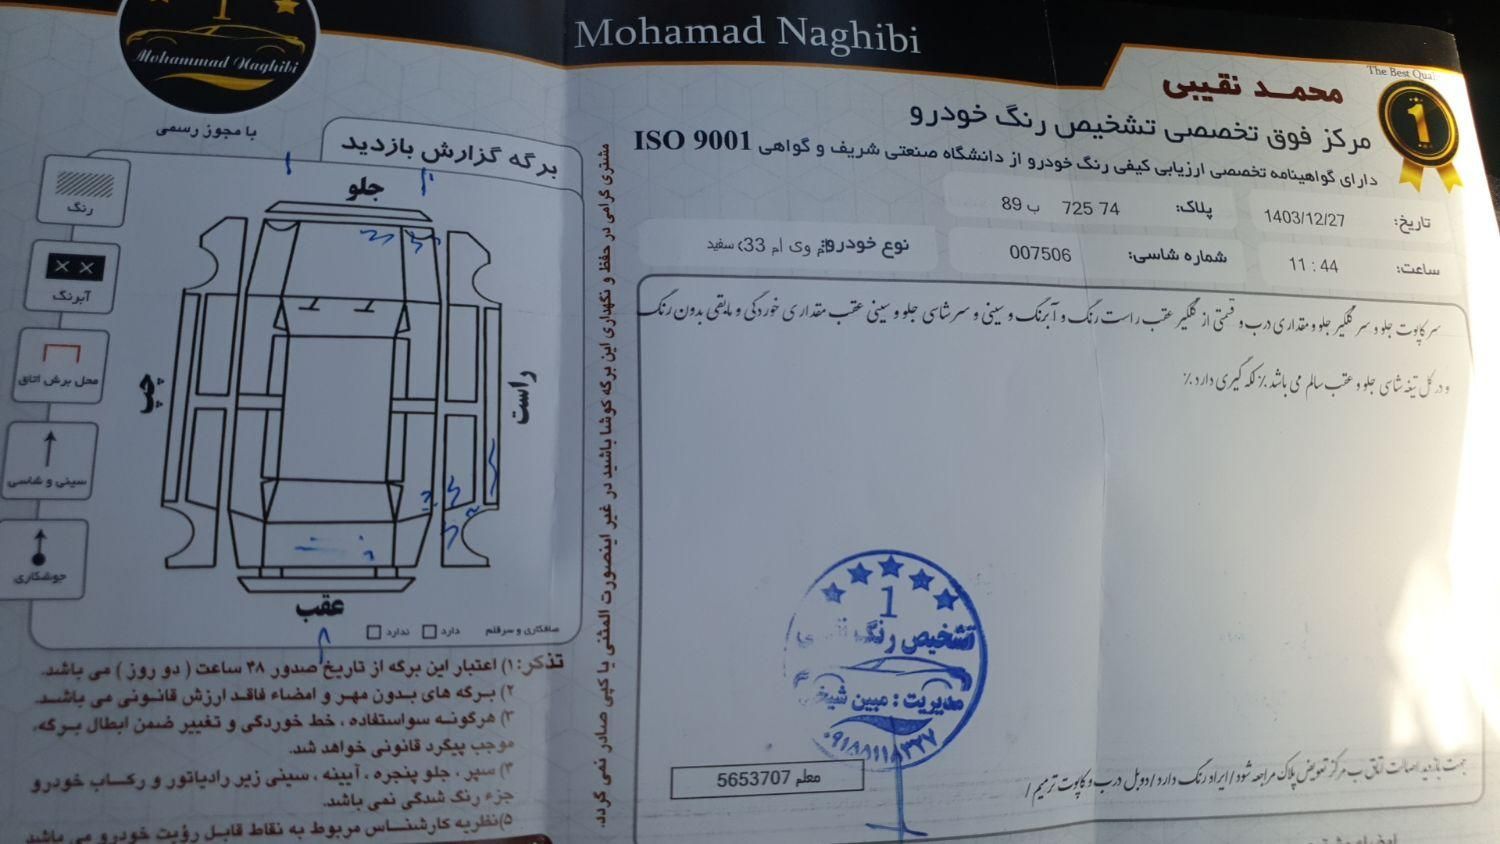 Mohamad Naghibi
The Best Qual
محمد نقیبی
مرکز فوق تخصصی تشخیص رنگ خودرو
دارای گواهینامه تخصصی ارزیابی کیفی رنگ خودرو از دانشگاه صنعتی شریف و گواهی ISO 9001
1
تاریخ: 1403/12/27
پلاک: 74 725 ب 89
ساعت: 11 : 44
شماره شاسی: 007506
نوع خودرو: ام وی ام 33 سفید
سر کاپوت جلو و سر گلگیر جلو و مقداری درب و قسمتی از گلگیر عقب راست رنگ و آبرنگ و سینی و سر شاسی جلو و سینی عقب مقداری خوردگی و مابقی بدون رنگ
و در کل تیغه شاسی جلو و عقب سالم می باشد ٪ لکه گیری دارد ٪
1
تشخیص رنگ
مدیریت : مبین شیخی
معلم 5653707
جهت بازدید اصالت اتاق ب مرکز تعویض پلاک مراجعه شود / ایراد رنگ دارد / دوبل درب و کاپوت ترمیم /
مشتری گرامی در حفظ و نگهداری این برگه کوشا باشید در غیر اینصورت المثنی یا کپی صادر نمی گردد.
1
Mohammad Naghibi
با مجوز رسمی
برگه گزارش بازدید
جلو
چپ
راست
عقب
رنگ
آبرنگ
محل برش اتاق
سینی و شاسی
جوشکاری
صافکاری و سرقلم دارد ندارد
تذکر: ۱) اعتبار این برگه از تاریخ صدور ۴۸ ساعت ( دو روز ) می باشد.
۲) برگه های بدون مهر و امضاء فاقد ارزش قانونی می باشد.
۳) هرگونه سواستفاده ، خط خوردگی و تغییر ضمن ابطال برگه،
موجب پیگرد قانونی خواهد شد.
۴) سپر ، جلو پنجره ، آیینه ، سینی زیر رادیاتور و رکاب خودرو
جزء رنگ شدگی نمی باشد.
۵) نظریه کارشناس مربوط به نقاط قابل رؤیت خودرو می باشد